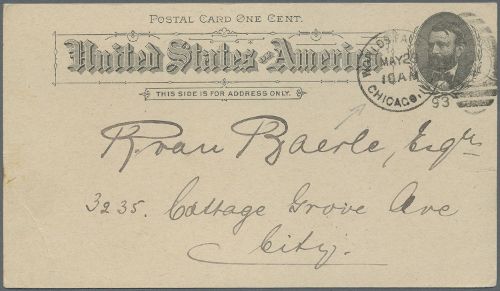 POSTAL CARD ONE CENT.
United States of America
THIS SIDE IS FOR ADDRESS ONLY.
WORLD'S FAIR
MAY 2
10 AM
CHICAGO.
93
R. van Baerle, Esqr
3235. Cottage Grove Ave
City.